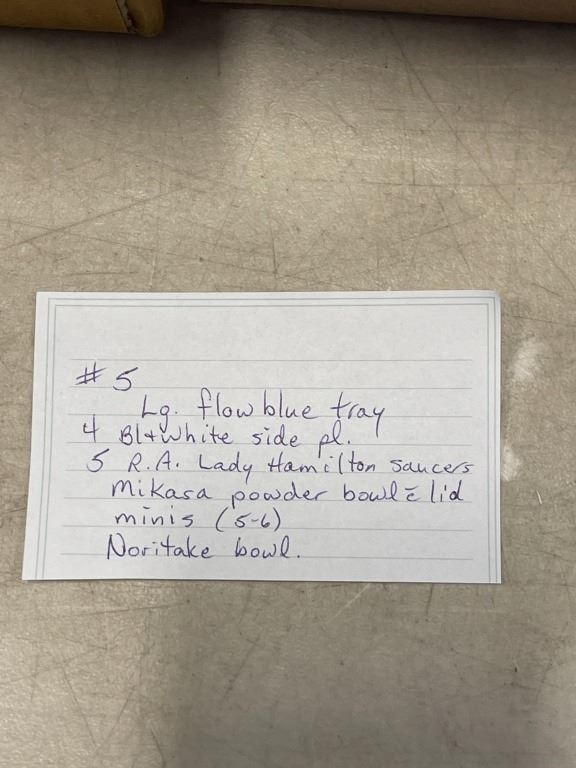 # 5
Lg. flow blue tray
4 Bl+white side pl.
5 R.A. Lady Hamilton saucers
Mikasa powder bowl c̄ lid
minis (5-6)
Noritake bowl.